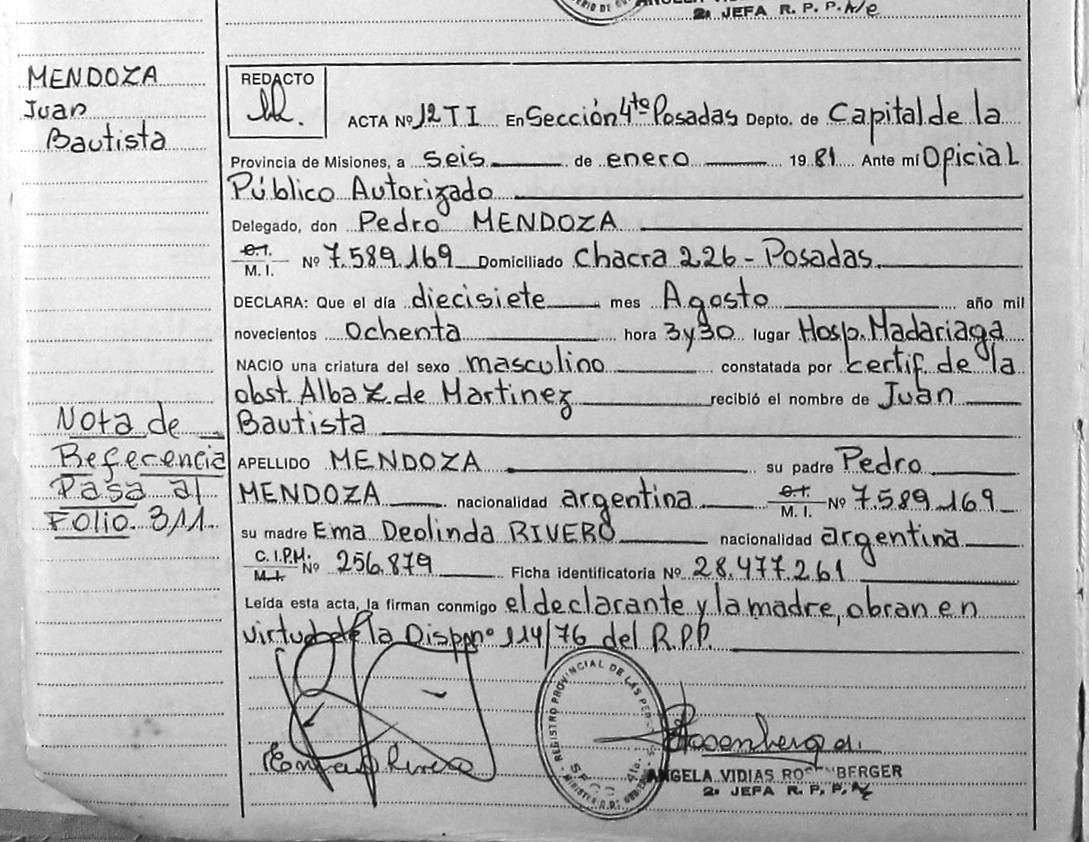 2a JEFA R. P. P. A/c
MENDOZA
Juan
Bautista
REDACTO
ACTA Nº 12 TI En Sección 4ta Posadas Depto. de Capital de la
Provincia de Misiones, a seis de enero 1981 Ante mí Oficial
Público Autorizado
Delegado, don Pedro MENDOZA
C.I. M. I. Nº 7.589.169 Domiciliado Chacra 226 - Posadas
DECLARA: Que el día diecisiete mes Agosto año mil
novecientos Ochenta hora 3y30 lugar Hosp. Madariaga
NACIO una criatura del sexo masculino constatada por certif. de la
obst. Alba Z. de Martinez recibió el nombre de Juan
Bautista
Nota de
Referencia
Pasa al
Folio. 311.
APELLIDO MENDOZA su padre Pedro
MENDOZA nacionalidad argentina C.I. M. I. Nº 7.589.169
su madre Ema Deolinda RIVERO nacionalidad argentina
C. I.P.M. M.I. Nº 256.879 Ficha identificatoria Nº 28.477.261
Leída esta acta, la firman conmigo el declarante y la madre, obran en
virtud de la Disp. nº 114/76 del R.P.P.
REGISTRO PROVINCIAL DE LAS PER
Rosenberger
ANGELA VIDIAS RO BERGER
2a JEFA R. P. P. A/c